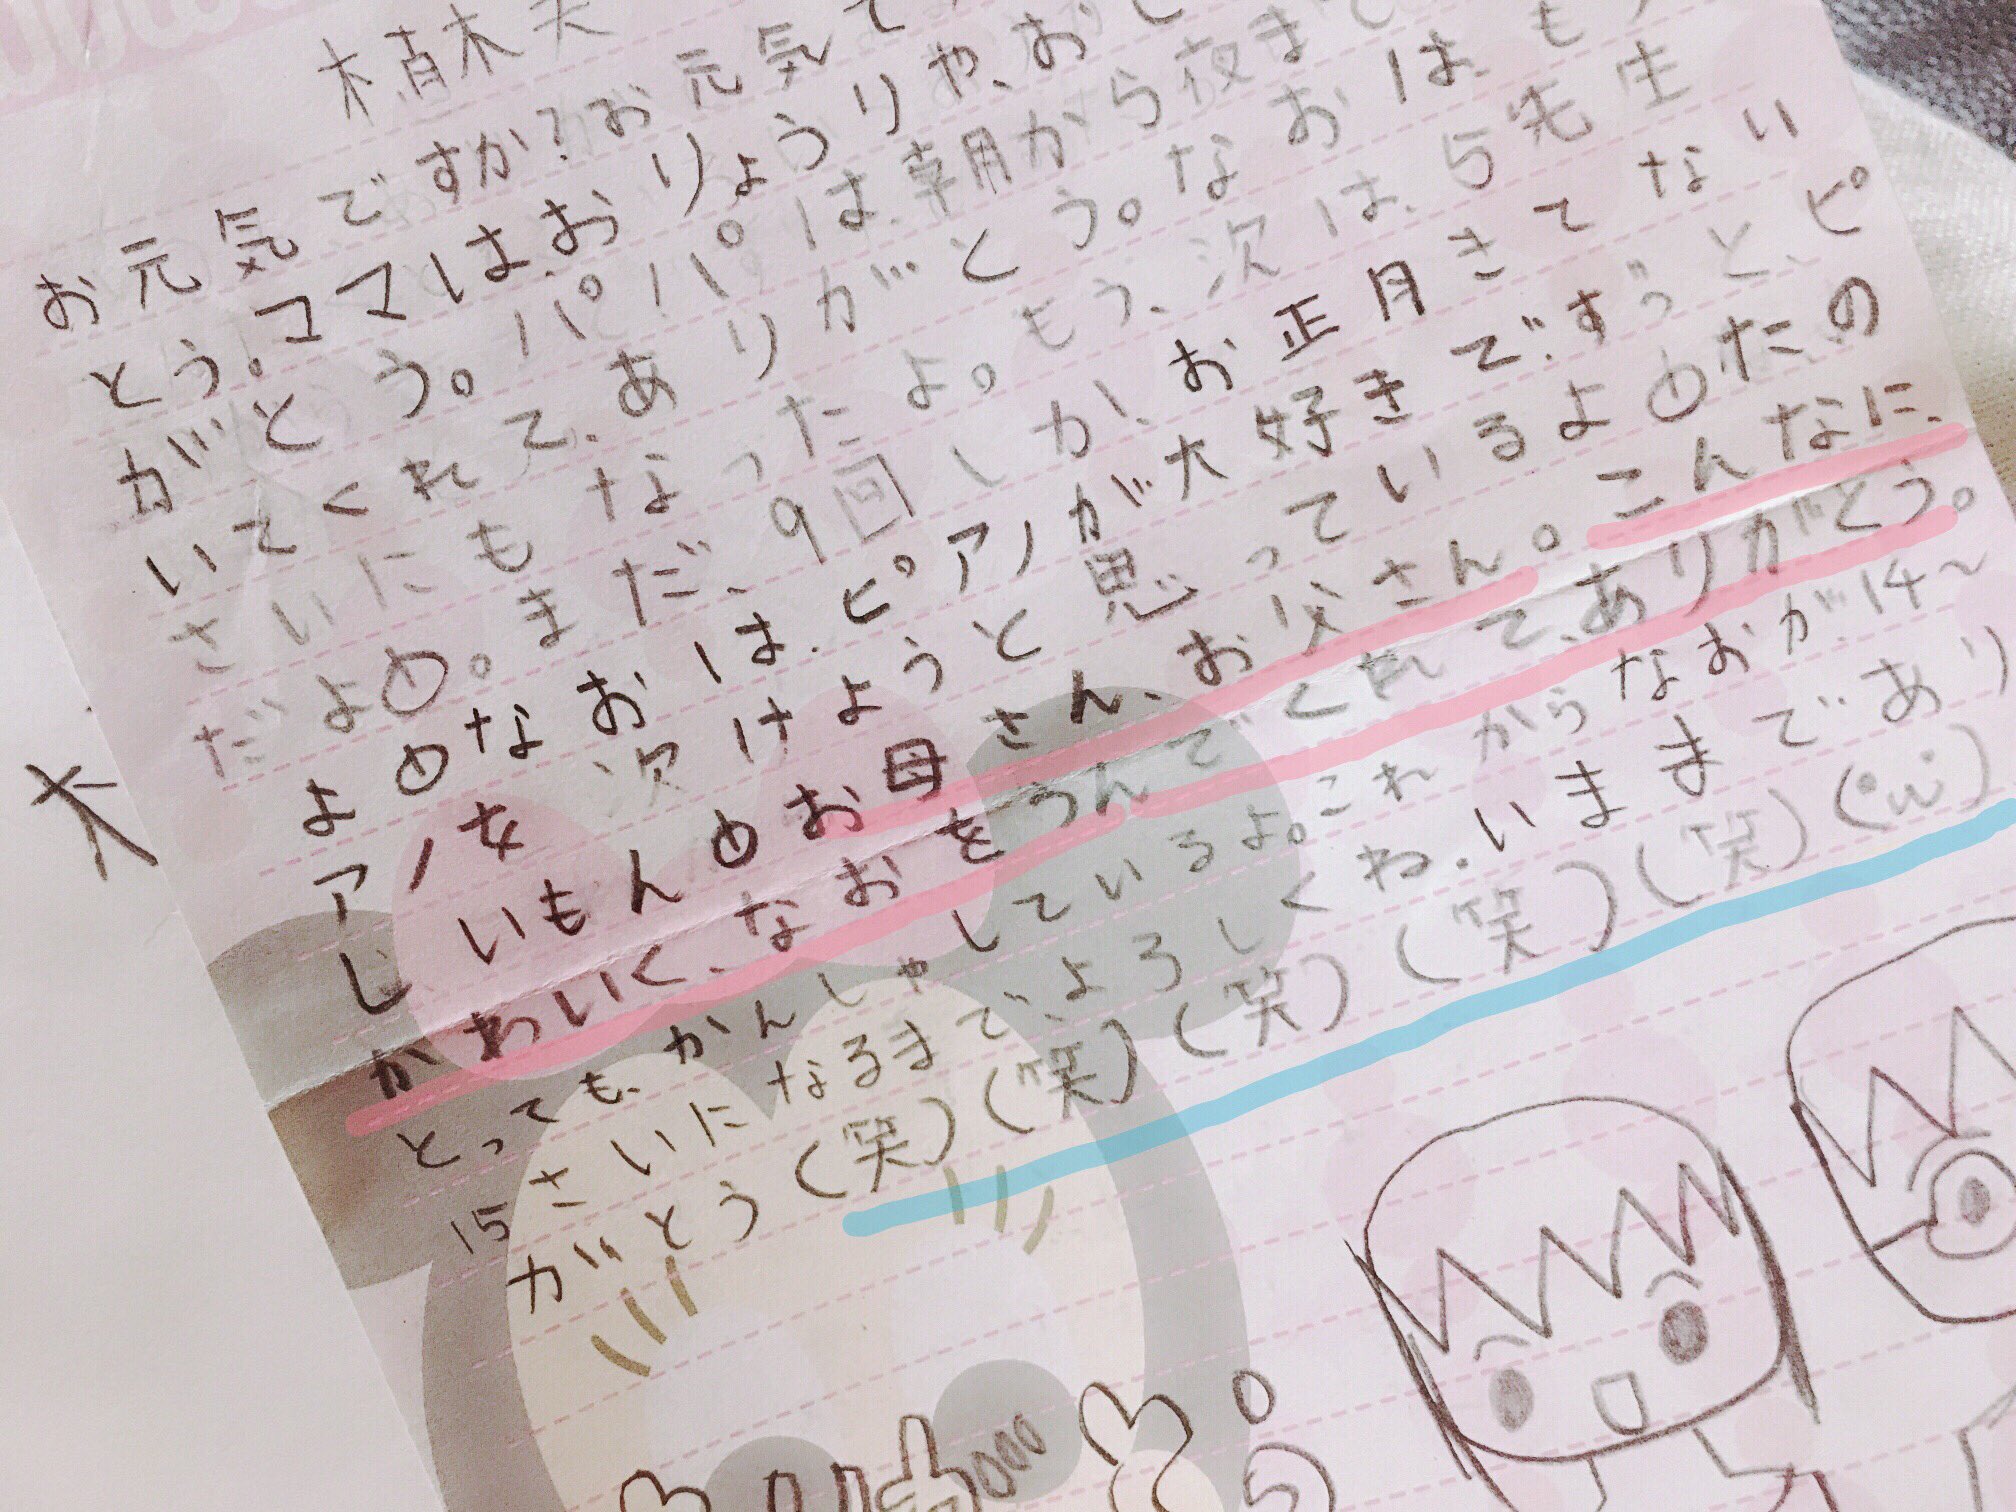 植木夫
お元気ですか?お元気で
とう。ママは、おりょうりや、おし
がとう。パパは、朝から夜まで
いてくれて、ありがとう。なおは、も
さいにもなったよ。もう、次は、5先生
だよの。まだ、9回しか、お正月さてない
よのなおは、ピアノが大好きです。っと、ピ
アノを次けようと思っているよのだの
じいもんのお母さん、お父さん。こんなに、
かわいく、なおをうんでくれて、ありがとう。
とっても、かんしゃしているよ。これからなおが、14~
15さいになるまで、よろしくね。いままであり
がとう(笑)(笑)(笑)(笑)(笑)(•ω•)